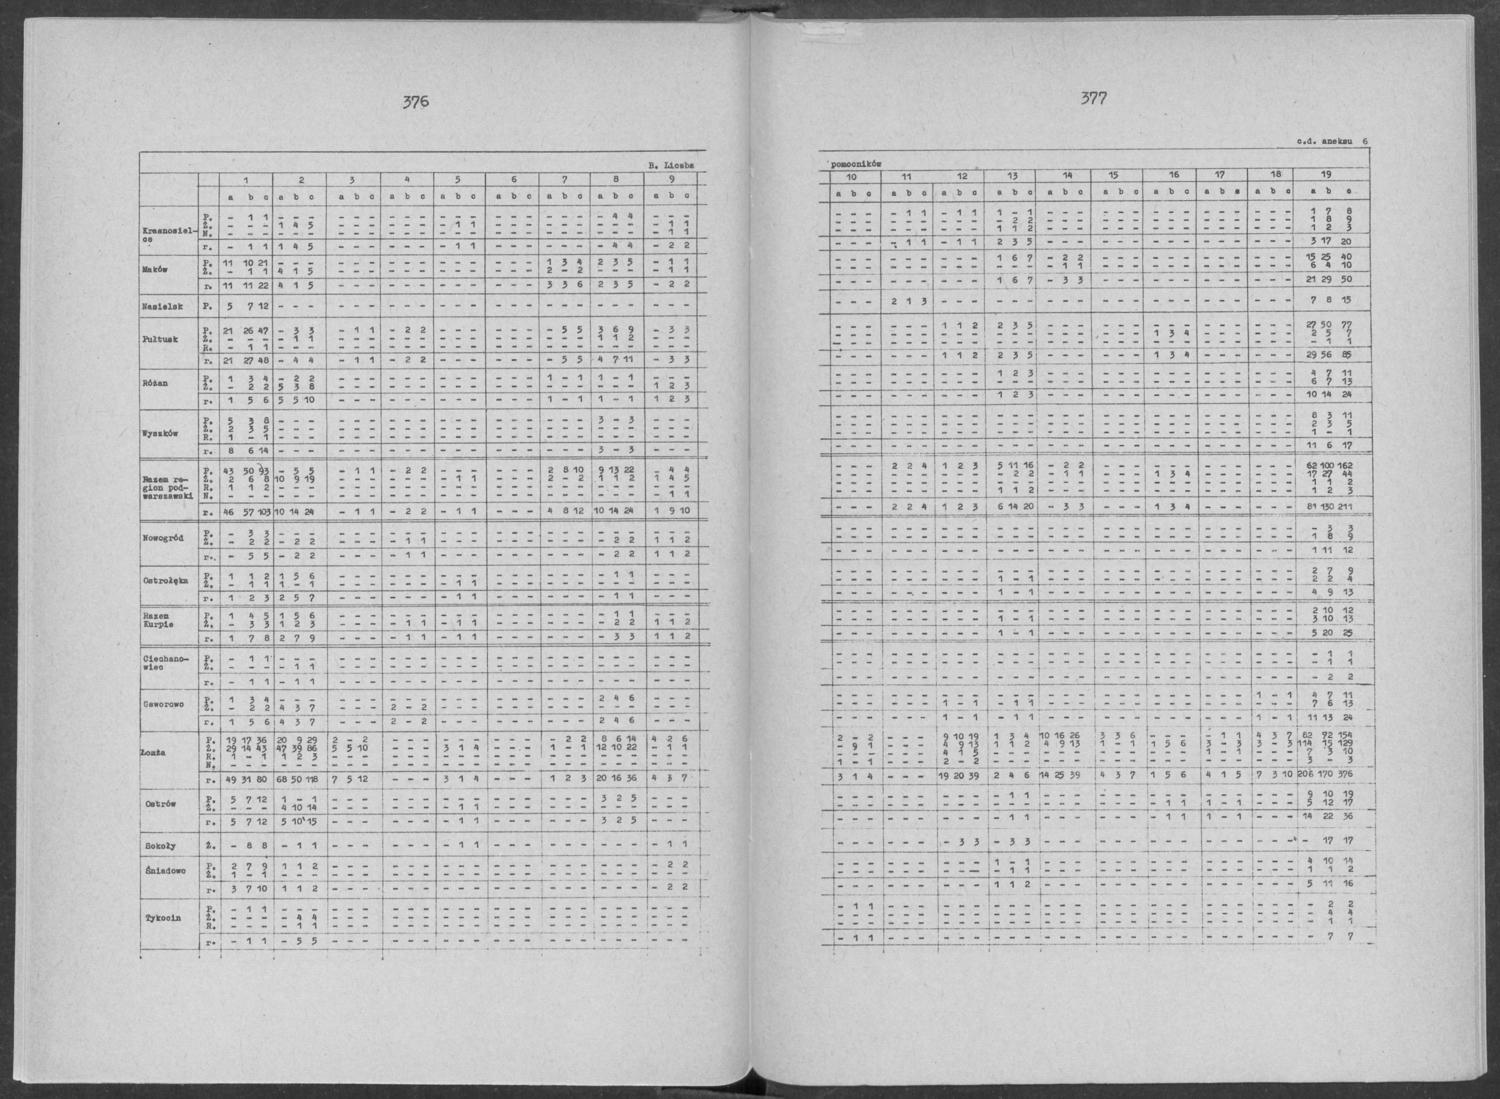 376
B. Liczba
1 2 3 4 5 6 7 8 9
a b c a b c a b c a b c a b c a b c a b c a b c a b c
Krasnosiel-
ce
P. - 1 1 - - - - - - - - - - - - - - - - - - - 4 4 - - -
Ż. - - - 1 4 5 - - - - - - - 1 1 - - - - - - - - - - 1 1
N. - - - - - - - - - - - - - - - - - - - - - - - - - 1 1
r. - 1 1 1 4 5 - - - - - - - 1 1 - - - - - - - 4 4 - 2 2
Maków
P. 11 10 21 - - - - - - - - - - - - - - - 1 3 4 2 3 5 - 1 1
Ż. - 1 1 4 1 5 - - - - - - - - - - - - 2 - 2 - - - - 1 1
r. 11 11 22 4 1 5 - - - - - - - - - - - - 3 3 6 2 3 5 - 2 2
Nasielsk P. 5 7 12
Pułtusk
P. 21 26 47 - 3 3 - 1 1 - 2 2 - - - - - - - 5 5 3 6 9 - 3 3
Ż. - - - - 1 1 - - - - - - - - - - - - - - - 1 1 2 - - -
R. - 1 1 - - - - - - - - - - - - - - - - - - - - - - - -
r. 21 27 48 - 4 4 - 1 1 - 2 2 - - - - - - - 5 5 4 7 11 - 3 3
Różan
P. 1 3 4 - 2 2 - - - - - - - - - - - - 1 - 1 1 - 1 - - -
Ż. - 2 2 5 3 8 - - - - - - - - - - - - - - - - - - 1 2 3
r. 1 5 6 5 5 10 - - - - - - - - - - - - 1 - 1 1 - 1 1 2 3
Wyszków
P. 5 3 8 - - - - - - - - - - - - - - - - - - 3 - 3 - - -
Ż. 2 3 5 - - - - - - - - - - - - - - - - - - - - - - - -
R. 1 - 1 - - - - - - - - - - - - - - - - - - - - - - - -
r. 8 6 14 - - - - - - - - - - - - - - - - - - 3 - 3 - - -
Razem re-
gion pod-
warszawski
P. 43 50 93 - 5 5 - 1 1 - 2 2 - - - - - - 2 8 10 9 13 22 - 4 4
Ż. 2 6 8 10 9 19 - - - - - - - 1 1 - - - 2 - 2 1 1 2 1 4 5
R. 1 1 2 - - - - - - - - - - - - - - - - - - - - - - - -
N. - - - - - - - - - - - - - - - - - - - - - - - - - 1 1
r. 46 57 103 10 14 24 - 1 1 - 2 2 - 1 1 - - - 4 8 12 10 14 24 1 9 10
Nowogród
P. - 3 3 - - - - - - - - - - - - - - - - - - - - - - - -
Ż. - 2 2 - 2 2 - - - - 1 1 - - - - - - - - - - 2 2 1 1 2
r. - 5 5 - 2 2 - - - - 1 1 - - - - - - - - - - 2 2 1 1 2
Ostrołęka
P. 1 1 2 1 5 6 - - - - - - - - - - - - - - - - 1 1 - - -
Ż. - 1 1 1 - 1 - - - - - - - 1 1 - - - - - - - - - - - -
r. 1 2 3 2 5 7 - - - - - - - 1 1 - - - - - - - 1 1 - - -
Razem
Kurpie
P. 1 4 5 1 5 6 - - - - - - - - - - - - - - - - 1 1 - - -
Ż. - 3 3 1 2 3 - - - - 1 1 - 1 1 - - - - - - - 2 2 1 1 2
r. 1 7 8 2 7 9 - - - - 1 1 - 1 1 - - - - - - - 3 3 1 1 2
Ciechano-
wiec
P. - 1 1 - - - - - - - - - - - - - - - - - - - - - - - -
Ż. - - - - 1 1 - - - - - - - - - - - - - - - - - - - - -
r. - 1 1 - 1 1 - - - - - - - - - - - - - - - - - - - - -
Goworowo
P. 1 3 4 - - - - - - - - - - - - - - - - - - 2 4 6 - - -
Ż. - 2 2 4 3 7 - - - 2 - 2 - - - - - - - - - - - - - - -
r. 1 5 6 4 3 7 - - - 2 - 2 - - - - - - - - - 2 4 6 - - -
Łomża
P. 19 17 36 20 9 29 2 - 2 - - - - - - - - - - 2 2 8 6 14 4 2 6
Ż. 29 14 43 47 39 86 5 5 10 - - - 3 1 4 - - - 1 - 1 12 10 22 - 1 1
R. 1 - 1 1 2 3 - - - - - - - - - - - - - - - - - - - - -
N. - - - - - - - - - - - - - - - - - - - - - - - - - - -
r. 49 31 80 68 50 118 7 5 12 - - - 3 1 4 - - - 1 2 3 20 16 36 4 3 7
Ostrów
P. 5 7 12 1 - 1 - - - - - - - - - - - - - - - 3 2 5 - - -
Ż. - - - 4 10 14 - - - - - - - 1 1 - - - - - - - - - - - -
r. 5 7 12 5 10 15 - - - - - - - 1 1 - - - - - - 3 2 5 - - -
Sokoły Ż. - 8 8 - 1 1 - - - - - - - 1 1 - - - - - - - - - - 1 1
Śniadowo
P. 2 7 9 1 1 2 - - - - - - - - - - - - - - - - - - - 2 2
Ż. 1 - 1 - - - - - - - - - - - - - - - - - - - - - - - -
r. 3 7 10 1 1 2 - - - - - - - - - - - - - - - - - - - 2 2
Tykocin
P. - 1 1 - - - - - - - - - - - - - - - - - - - - - - - -
Ż. - - - - 4 4 - - - - - - - - - - - - - - - - - - - - -
R. - - - - 1 1 - - - - - - - - - - - - - - - - - - - - -
r. - 1 1 - 5 5 - - - - - - - - - - - - - - - - - - - - -
377
c.d. aneksu 6
pomocników
10 11 12 13 14 15 16 17 18 19
a b c a b c a b c a b c a b c a b c a b c a b c a b c a b c
- - - - 1 1 - 1 1 1 - 1 - - - - - - - - - - - - - - - 1 7 8
- - - - - - - - - - 2 2 - - - - - - - - - - - - - - - 1 8 9
- - - - - - - - - 1 1 2 - - - - - - - - - - - - - - - 1 2 3
- - - - 1 1 - 1 1 2 3 5 - - - - - - - - - - - - - - - 3 17 20
- - - - - - - - - 1 6 7 - 2 2 - - - - - - - - - - - - 15 25 40
- - - - - - - - - - - - - 1 1 - - - - - - - - - - - - 6 4 10
- - - - - - - - - 1 6 7 - 3 3 - - - - - - - - - - - - 21 29 50
- - - 2 1 3 - - - - - - - - - - - - - - - - - - - - - 7 8 15
- - - - - - 1 1 2 2 3 5 - - - - - - - - - - - - - - - 27 50 77
- - - - - - - - - - - - - - - - - - 1 3 4 - - - - - - 2 5 7
- - - - - - - - - - - - - - - - - - - - - - - - - - - - 1 1
- - - - - - 1 1 2 2 3 5 - - - - - - 1 3 4 - - - - - - 29 56 85
- - - - - - - - - 1 2 3 - - - - - - - - - - - - - - - 4 7 11
- - - - - - - - - - - - - - - - - - - - - - - - - - - 6 7 13
- - - - - - - - - 1 2 3 - - - - - - - - - - - - - - - 10 14 24
- - - - - - - - - - - - - - - - - - - - - - - - - - - 8 3 11
- - - - - - - - - - - - - - - - - - - - - - - - - - - 2 3 5
- - - - - - - - - - - - - - - - - - - - - - - - - - - 1 - 1
- - - - - - - - - - - - - - - - - - - - - - - - - - - 11 6 17
- - - 2 2 4 1 2 3 5 11 16 - 2 2 - - - - - - - - - - - - 62 100 162
- - - - - - - - - - 2 2 - 1 1 - - - 1 3 4 - - - - - - 17 27 44
- - - - - - - - - - - - - - - - - - - - - - - - - - - 1 1 2
- - - - - - - - - 1 1 2 - - - - - - - - - - - - - - - 1 2 3
- - - 2 2 4 1 2 3 6 14 20 - 3 3 - - - 1 3 4 - - - - - - 81 130 211
- - - - - - - - - - - - - - - - - - - - - - - - - - - - 3 3
- - - - - - - - - - - - - - - - - - - - - - - - - - - 1 8 9
- - - - - - - - - - - - - - - - - - - - - - - - - - - 1 11 12
- - - - - - - - - - - - - - - - - - - - - - - - - - - 2 7 9
- - - - - - - - - 1 - 1 - - - - - - - - - - - - - - - 2 2 4
- - - - - - - - - 1 - 1 - - - - - - - - - - - - - - - 4 9 13
- - - - - - - - - - - - - - - - - - - - - - - - - - - 2 10 12
- - - - - - - - - 1 - 1 - - - - - - - - - - - - - - - 3 10 13
- - - - - - - - - 1 - 1 - - - - - - - - - - - - - - - 5 20 25
- - - - - - - - - - - - - - - - - - - - - - - - - - - - 1 1
- - - - - - - - - - - - - - - - - - - - - - - - - - - - 1 1
- - - - - - - - - - - - - - - - - - - - - - - - - - - - 2 2
- - - - - - - - - - - - - - - - - - - - - - - - 1 - 1 4 7 11
- - - - - - 1 - 1 - 1 1 - - - - - - - - - - - - - - - 7 6 13
- - - - - - 1 - 1 - 1 1 - - - - - - - - - - - - 1 - 1 11 13 24
2 - 2 - - - 9 10 19 1 3 4 10 16 26 3 3 6 - - - - 1 1 4 3 7 82 72 154
- 9 1 - - - 4 9 13 1 1 2 4 9 13 1 - 1 1 5 6 3 - 3 3 - 3 114 15 129
- - - - - - 4 1 5 - - - - - - - - - - - - 1 - 1 - - - 7 3 10
1 - 1 - - - 2 - 2 - - - - - - - - - - - - - - - - - - 3 - 3
3 1 4 - - - 19 20 39 2 4 6 14 25 39 4 3 7 1 5 6 4 1 5 7 3 10 206 170 376
- - - - - - - - - - 1 1 - - - - - - - - - - - - - - - 9 10 19
- - - - - - - - - - - - - - - - - - - 1 1 1 - 1 - - - 5 12 17
- - - - - - - - - - 1 1 - - - - - - - 1 1 1 - 1 - - - 14 22 36
- - - - - - - 3 3 - 3 3 - - - - - - - - - - - - - - - - 17 17
- - - - - - - - - 1 - 1 - - - - - - - - - - - - - - - 4 10 14
- - - - - - - - - - 1 1 - - - - - - - - - - - - - - - 1 1 2
- - - - - - - - - 1 1 2 - - - - - - - - - - - - - - - 5 11 16
- 1 1 - - - - - - - - - - - - - - - - - - - - - - - - - 2 2
- - - - - - - - - - - - - - - - - - - - - - - - - - - - 4 4
- - - - - - - - - - - - - - - - - - - - - - - - - - - - 1 1
- 1 1 - - - - - - - - - - - - - - - - - - - - - - - - - 7 7